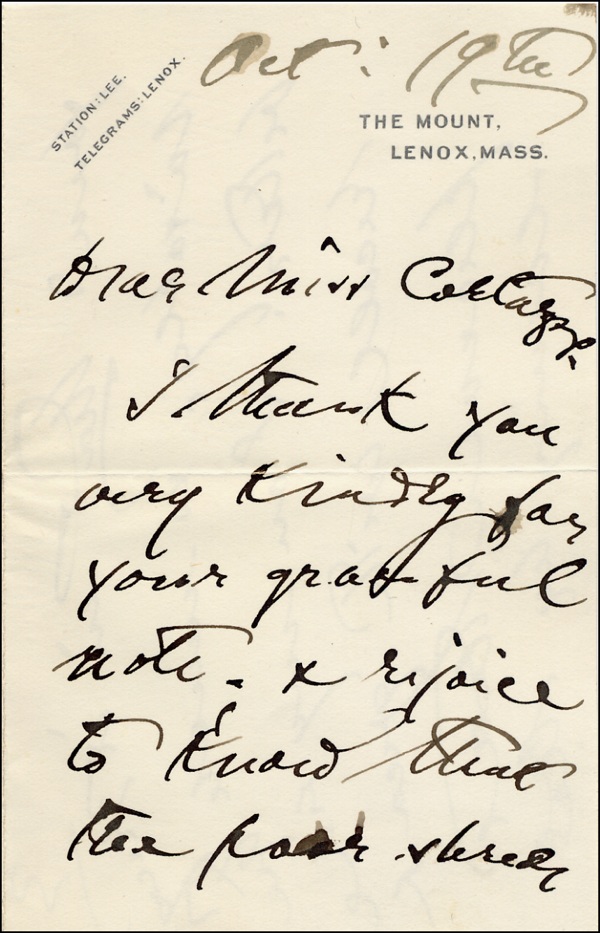 STATION: LEE.
TELEGRAMS: LENOX.
Oct: 19th
THE MOUNT,
LENOX, MASS.
Dear Miss
I thank you
very kindly for
your grateful
note. & rejoice
to know that
the poor